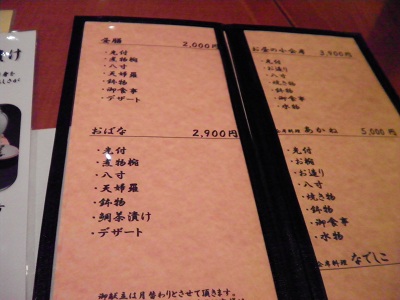 昼膳 2,000円
・先付
・煮物椀
・八寸
・天婦羅
・鉢物
・御食事
・デザート
おばな 2,900円
・先付
・煮物椀
・八寸
・天婦羅
・鉢物
・鯛茶漬け
・デザート
御献立は月替わりとさせて頂きます。
お昼の小会席 3,900円
・先付
・お造り
・八寸
・焼き物
・鉢物
・御食事
・水物
会席料理 あかね 5,000円
・先付
・お椀
・お造り
・八寸
・焼き物
・鉢物
・御食事
・水物
会席料理 なでしこ
漬け